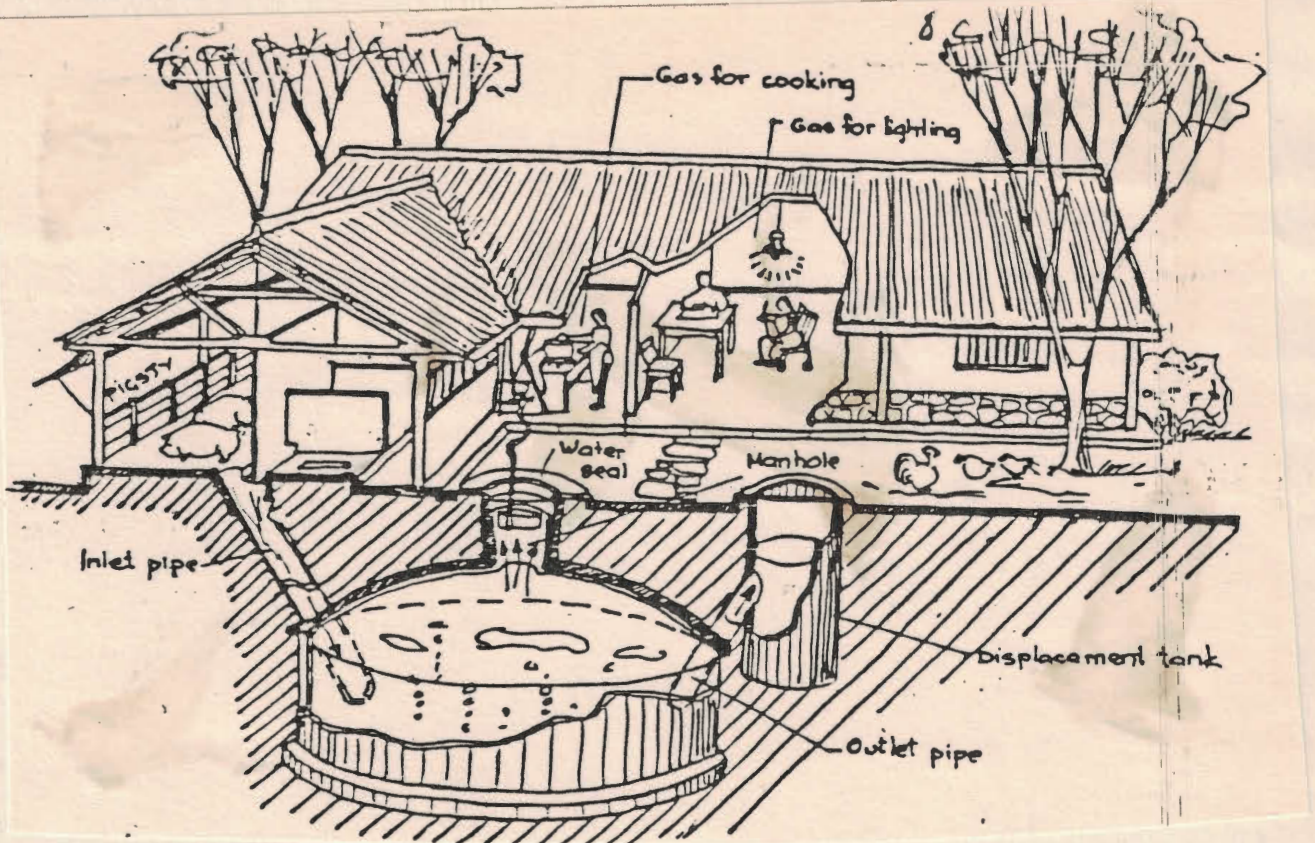 8
Gas for cooking
Gas for lighting
PIGSTY
Water
seal
Manhole
Inlet pipe
Displacement tank
Outlet pipe